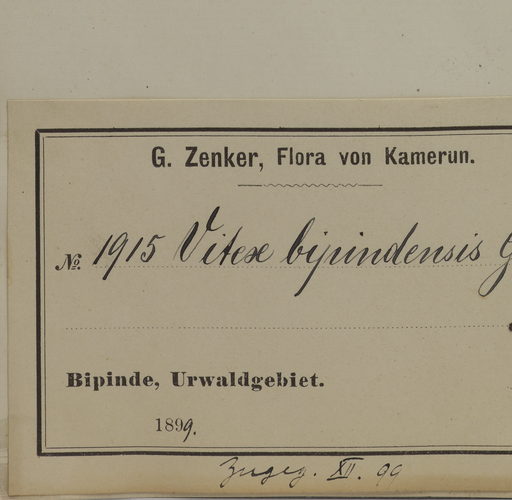 G. Zenker, Flora von Kamerun.
№. 1915 Vitex bipindensis G
Bipinde, Urwaldgebiet.
1899.
Zugeg. XII. 99